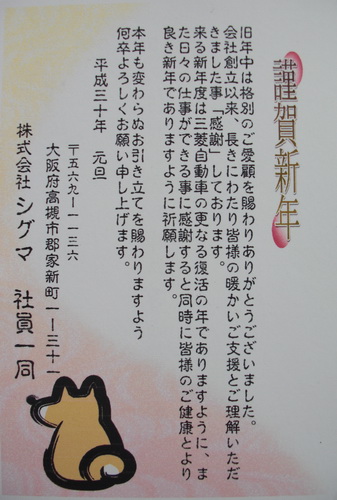 謹賀新年
旧年中は格別のご愛顧を賜わりありがとうございました。
会社創立以来、長きにわたり皆様の暖かいご支援とご理解いただ
きました事「感謝」しております。
来る新年度は三菱自動車の更なる復活の年でありますように、ま
た日々の仕事ができる事に感謝すると同時に皆様のご健康とより
良き新年でありますようにお祈願します。
本年も変わらぬお引き立てを賜わりますよう
何卒よろしくお願い申し上げます。
平成三十年　元旦
〒五六九ー一一三六
大阪府高槻市郡家新町一ー三十一
株式会社 シグマ　社員一同